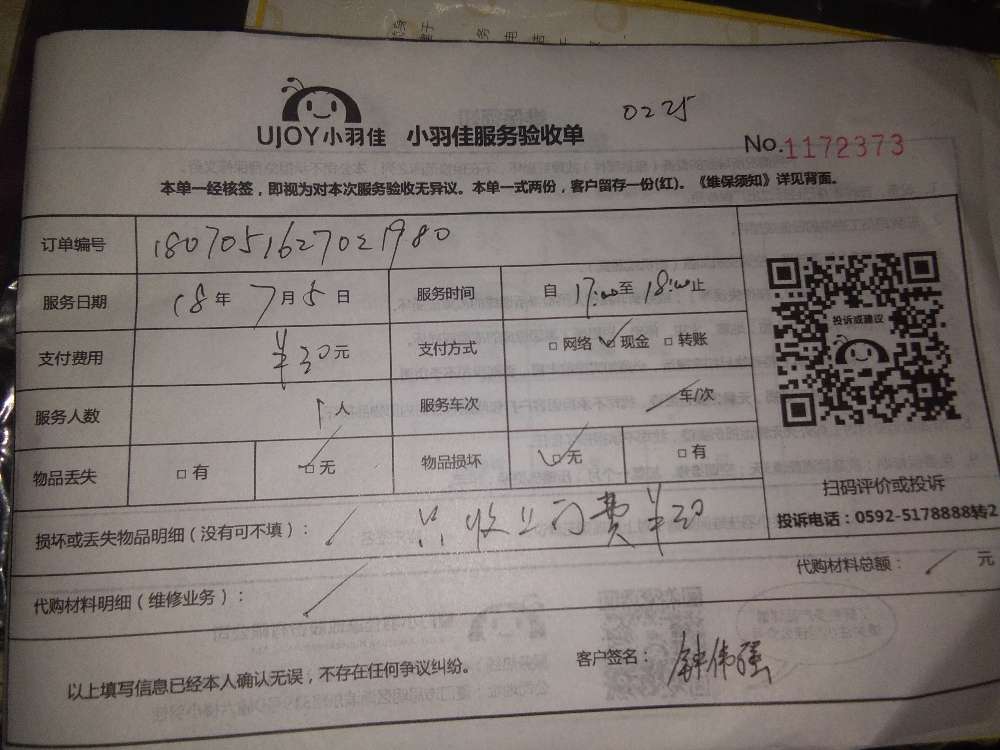 0225
UJOY小羽佳 小羽佳服务验收单
No.1172373
本单一经核签，即视为对本次服务验收无异议。本单一式两份，客户留存一份(红)。《维保须知》详见背面。
订单编号 1807051627021980
服务日期 18年7月5日 服务时间 自17:00至18:00止
投诉或建议
支付费用 ¥30元 支付方式 □网络 ✓现金 □转账
服务人数 1人 服务车次 / 车/次
物品丢失 □有 □无 物品损坏 □无 □有
扫码评价或投诉
损坏或丢失物品明细（没有可不填）： / 只收上门费¥30
投诉电话：0592-5178888转2
代购材料明细（维修业务）： / 代购材料总额： / 元
以上填写信息已经本人确认无误，不存在任何争议纠纷。 客户签名：钟伟强